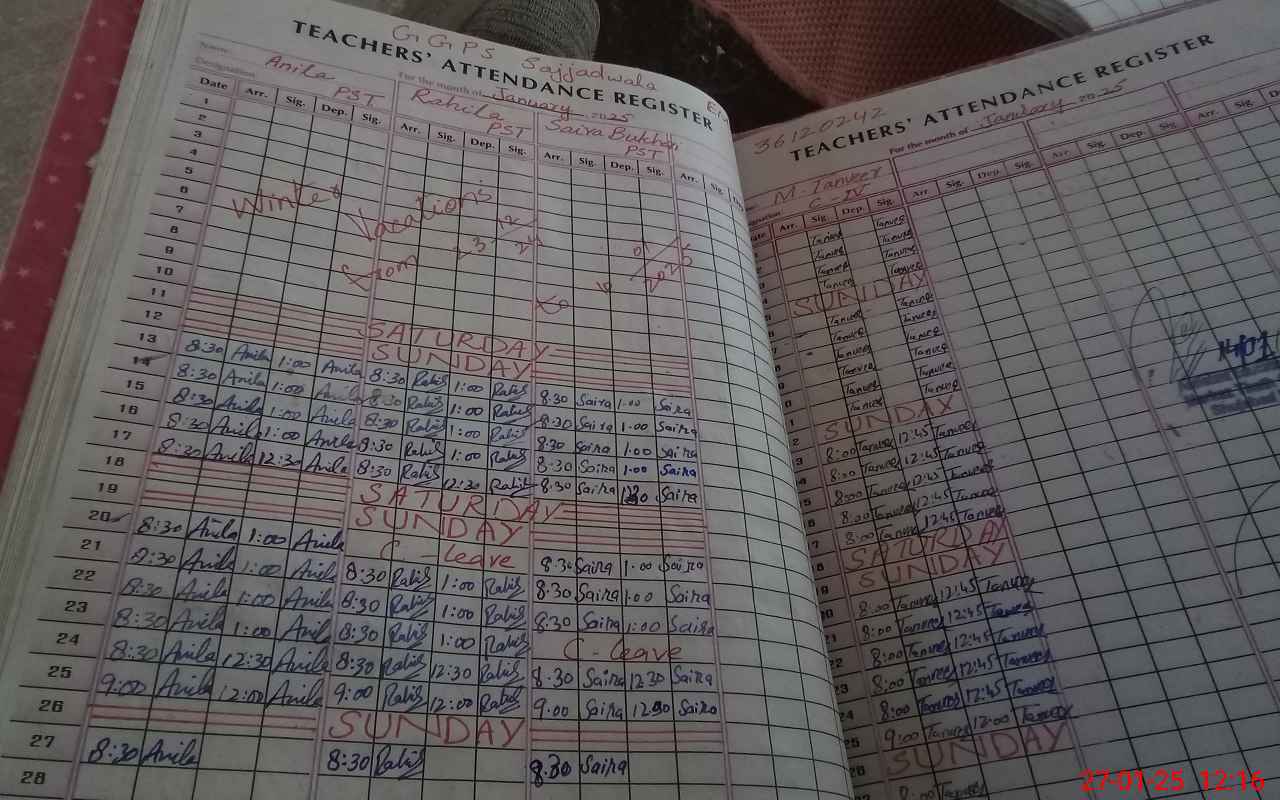 GGPS Sajjadwala
TEACHERS' ATTENDANCE REGISTER
Name Anila For the month of January 2025
Designation PST Rahila PST Saira PST
Date Arr. Sig. Dep. Sig. Arr. Sig. Dep. Sig. Arr. Sig. Dep. Sig. Arr. Sig.
1
2
3
4
5
6
7
8
9
10
11
12
Winter Vacations
from 23
to
SATURDAY
SUNDAY
13 8:30 Anila 1:00 Anila 8:30 Rahila 1:00 Rahila 8:30 Saira 1:00 Saira
14 8:30 Anila 1:00 Anila 8:30 Rahila 1:00 Rahila 8:30 Saira 1:00 Saira
15 8:30 Anila 1:00 Anila 8:30 Rahila 1:00 Rahila 8:30 Saira 1:00 Saira
16 8:30 Anila 1:00 Anila 8:30 Rahila 1:00 Rahila 8:30 Saira 1:00 Saira
17 8:30 Anila 12:30 Anila 8:30 Rahila 12:30 Rahila 8:30 Saira Saira
18 SATURDAY
19 SUNDAY
20 8:30 Anila 1:00 Anila C-leave 8:30 Saira 1:00 Saira
21 8:30 Anila 1:00 Anila 8:30 Rahila 1:00 Rahila 8:30 Saira 1:00 Saira
22 8:30 Anila 1:00 Anila 8:30 Rahila 1:00 Rahila 8:30 Saira 1:00 Saira
23 8:30 Anila 1:00 Anila 8:30 Rahila 1:00 Rahila C-leave
24 8:30 Anila 12:30 Anila 8:30 Rahila 12:30 Rahila 8:30 Saira 12:30 Saira
25 9:00 Anila 12:00 Anila 9:00 Rahila 12:00 Rahila 9:00 Saira Saira
26 SUNDAY
27 8:30 Anila 8:30 Rahila 8:30 Saira
28
36120242
TEACHERS' ATTENDANCE REGISTER
For the month of January 2025
M. Tanveer
C-IV
Arr. Sig. Dep. Sig. Arr. Sig. Dep. Sig. Arr. Sig. Dep. Sig.
Tanveer Tanveer
Tanveer Tanveer
Tanveer Tanveer
Tanveer Tanveer
SUNDAY
Tanveer Tanveer
Tanveer Tanveer
Tanveer Tanveer
Tanveer Tanveer
Tanveer Tanveer
Tanveer Tanveer
SUNDAY
8:00 Tanveer 12:45 Tanveer
8:00 Tanveer 12:45 Tanveer
8:00 Tanveer 12:45 Tanveer
8:00 Tanveer 12:45 Tanveer
8:00 Tanveer 12:45 Tanveer
SATURDAY
SUNDAY
8:00 Tanveer 12:45 Tanveer
8:00 Tanveer 12:45 Tanveer
8:00 Tanveer 12:45 Tanveer
8:00 Tanveer 12:45 Tanveer
8:00 Tanveer 12:45 Tanveer
25 9:00 Tanveer 12:00 Tanveer
SUNDAY
8:00 Tanveer
27-01-25 12:16